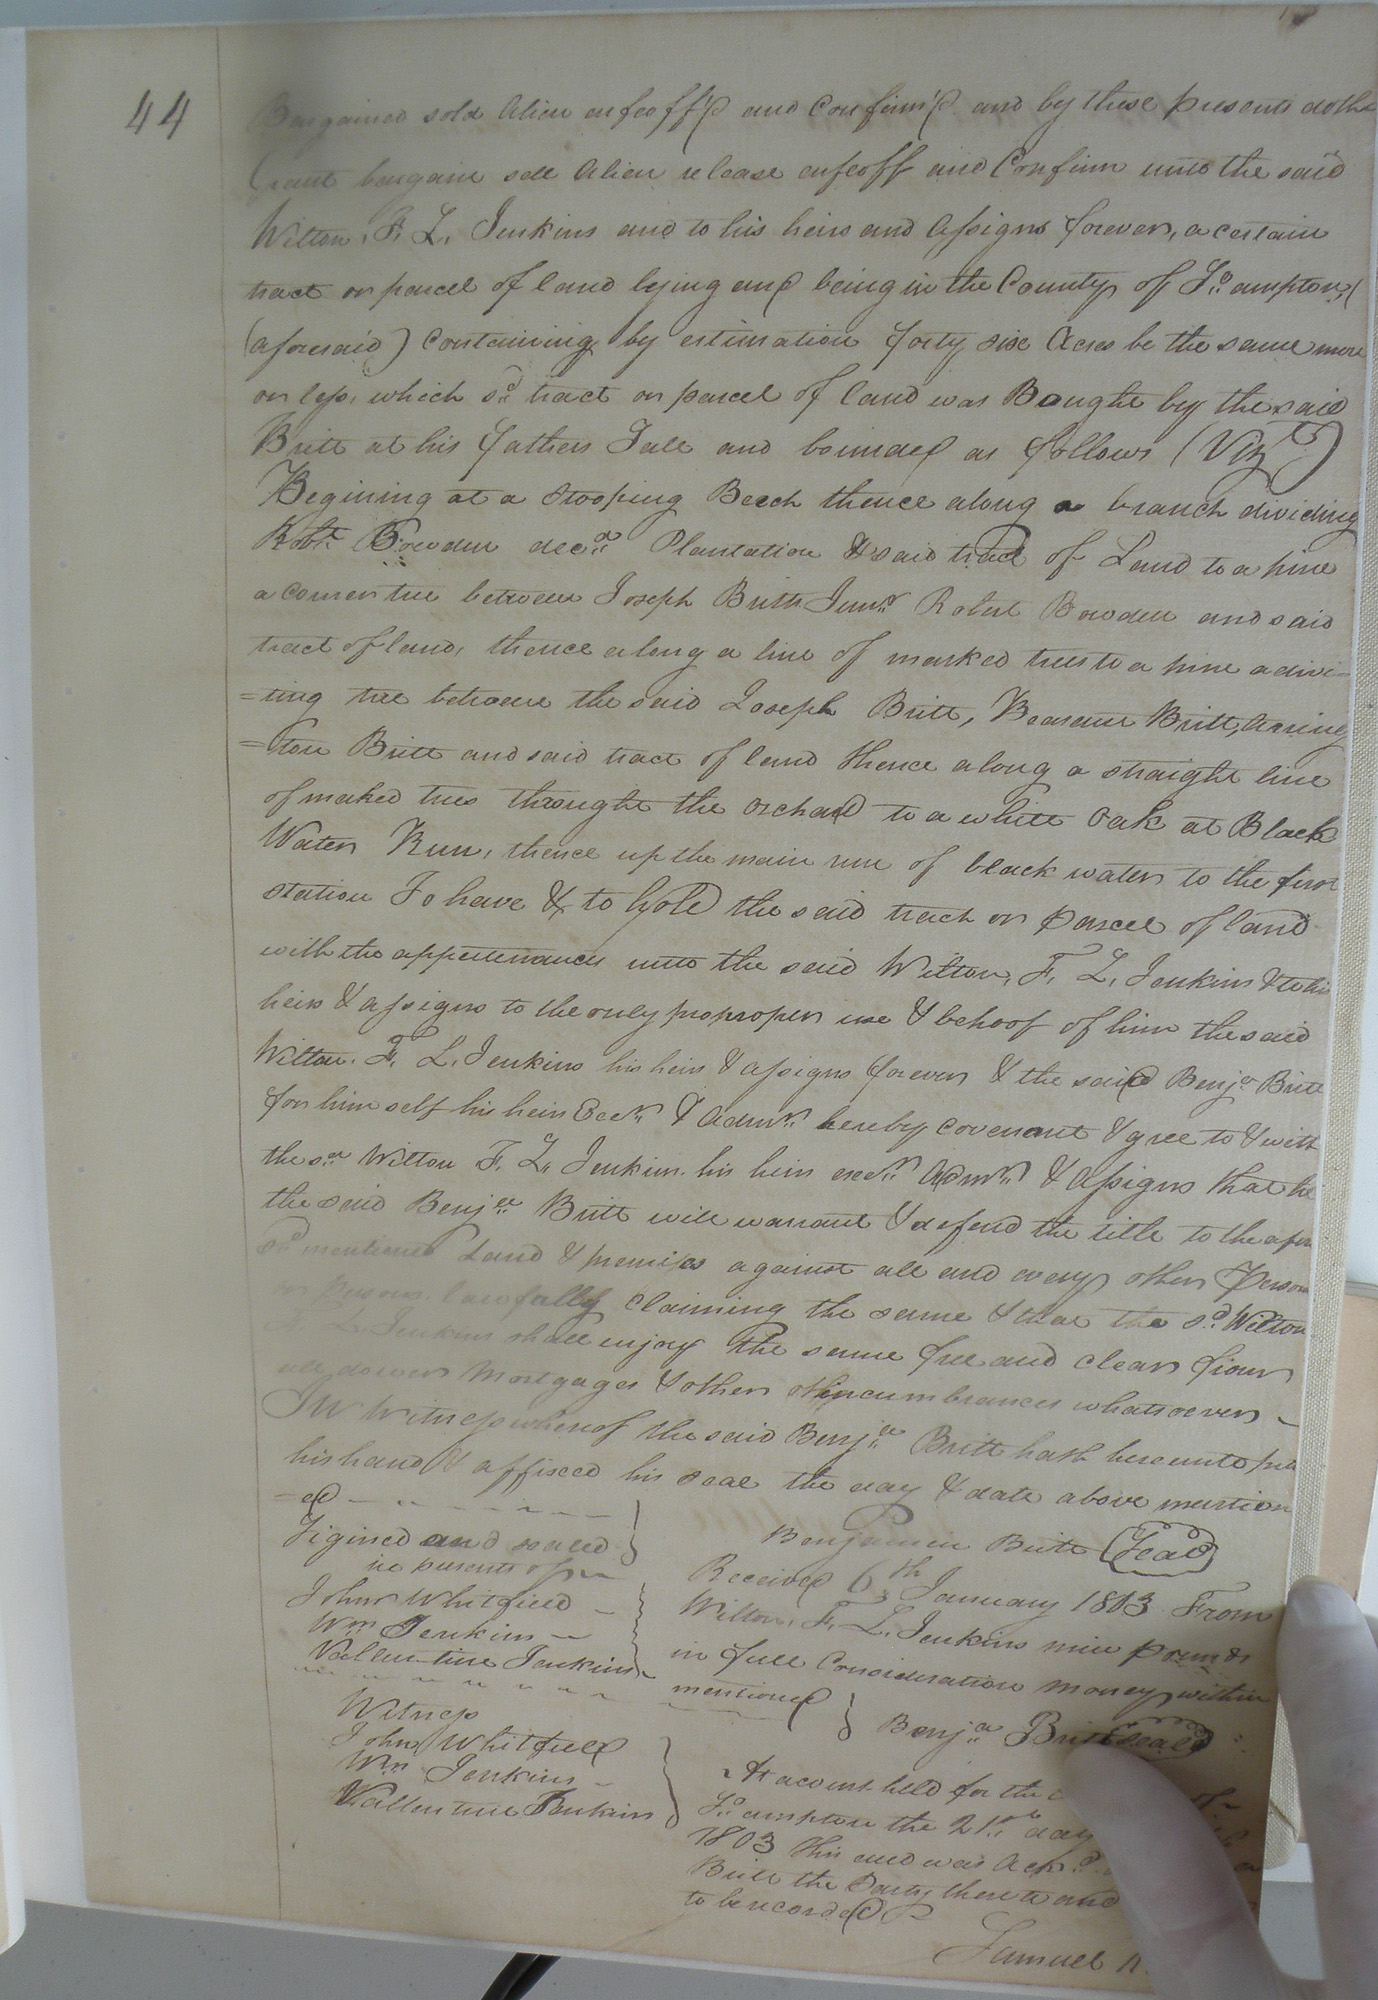 44
Bargained sold Alien enfeoff'd and Confirm'd and by these presents doth
Grant bargain sell Alien release enfeoff and Confirm unto the said
Wilton, F. L. Jenkins and to his heirs and Assigns forever, a certain
tract or parcel of land lying and being in the County of So.ampton,
(aforesaid) Containing by estimation forty six Acres be the same more
or less, which sd. tract or parcel of land was Bought by the said
Britt at his fathers Sale and bounded as follows (Vizt.)
Begining at a Stooping Beech thence along a branch dividing
Robt. Bowden decd. Plantation & said tract of Land to a pine
a corner tree between Joseph Britts Junr. Robert Bowden and said
tract of land, thence along a line of marked trees to a pine a divi=
=ting tree between the said Joseph Britt, Beasant Britt, Arring
=ton Britt and said tract of land thence along a straight line
of maked trees throught the orchard to a white oak at Black
Water Run, thence up the main run of black water to the first
station To have & to hold the said track or parcel of land
with the appertenances unto the said Wilton, F. L. Jenkins & to his
heirs & assigns to the only proproper use & behoof of him the said
Wilton. F. L. Jenkins his heirs & assigns forever & the said Benja. Britt
for him self his heirs Exrs. & Admrs. hereby covenant & gree to & with
the sd. Wilton F. L. Jenkins. his heirs exers. Admrs. & Assigns that he
the said Benja. Britt will warrant & defend the title to the afore
sd. mentioned Land & premises against all and every other Person
or Persons lawfully claiming the same & that the sd. Wilton
F. L. Jenkins shall enjoy the same free and clear from
all dowers Mortgages & other incumbrances whatsoever
In Witness whereof the said Benja. Britt hath hereunto
his hand & affixed his seal the day & date above mention
=ed
Signed and sealed
in presents of
Benjamin Britt (Seal)
John Whitfield
Wm. Jenkins
Vallentine Jenkins
Received 6th January 1803 From
Wilton, F. L. Jenkins nine pounds
in full Consideration money within
mentioned
Benja. Britt seal
Witness
John Whitfield
Wm. Jenkins
Vallentine Jenkins
At a court held for the
So.ampton the 21st. day
1803 this deed was Ackd.
Britt the Party there to and
to be recorded
Samuel